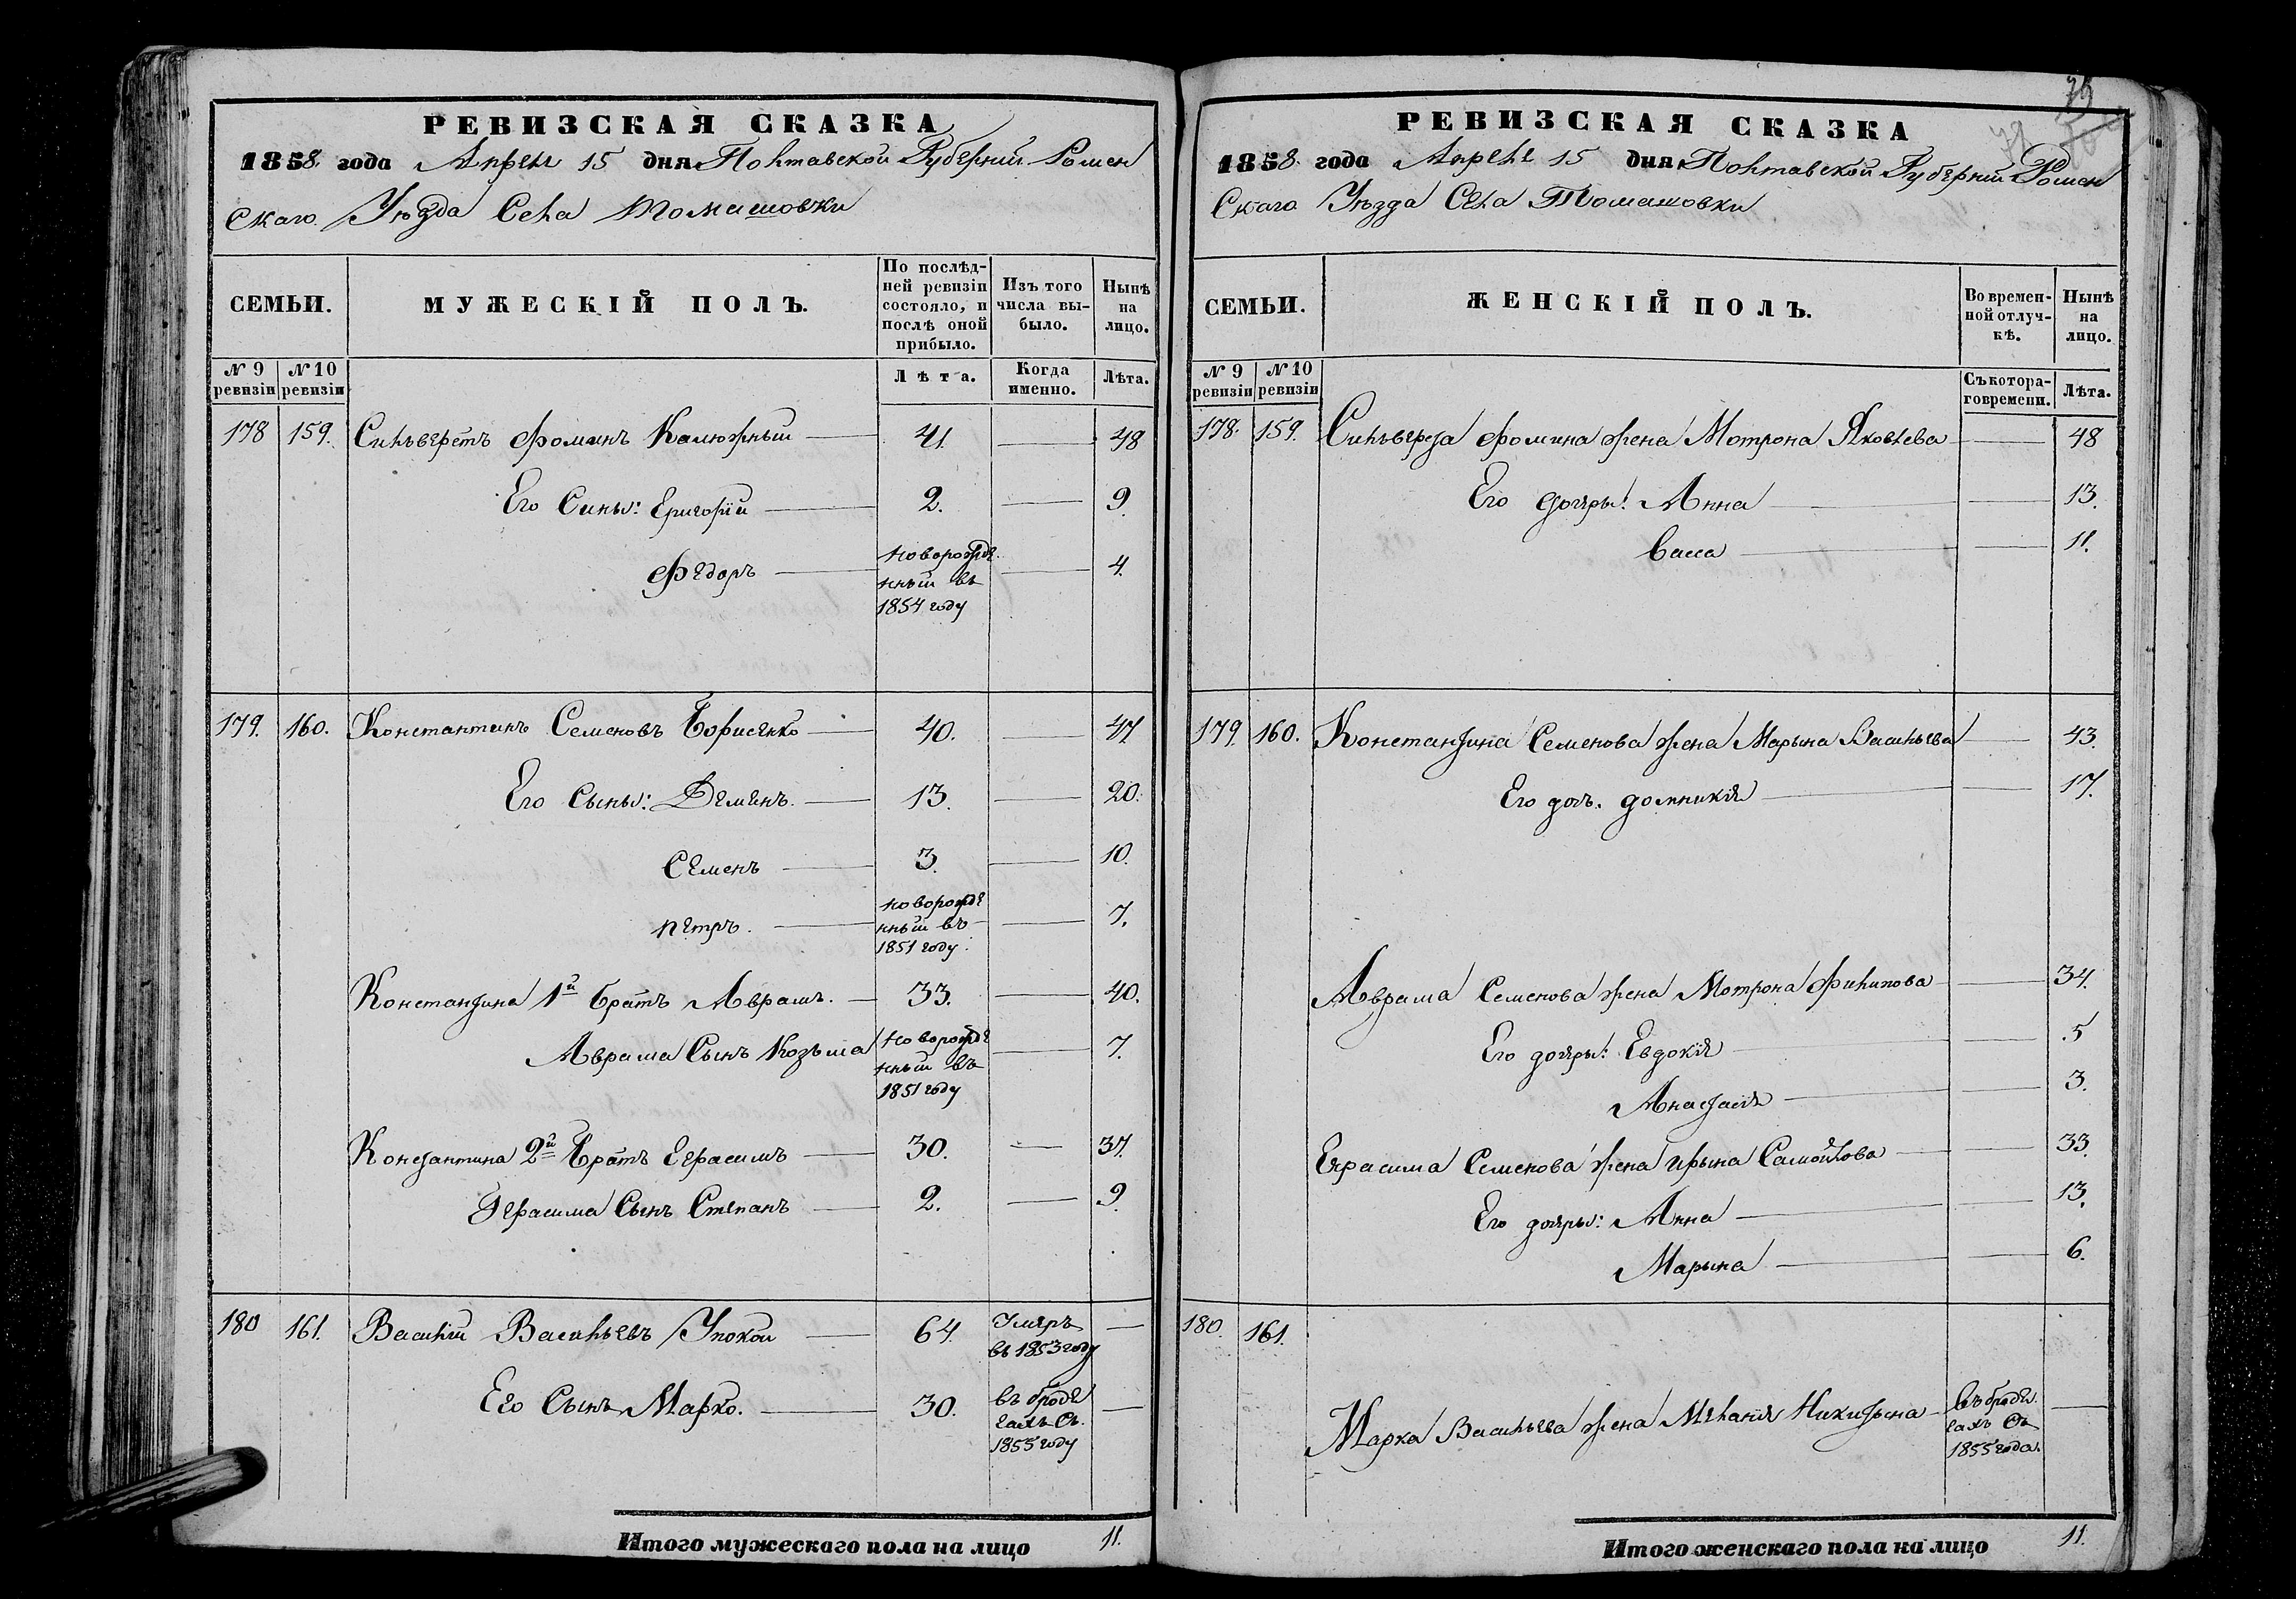 РЕВИЗСКАЯ СКАЗКА
1858 года Апреля 15 дня Полтавской Губернии Ромен
скаго Уѣзда Села Томашовки
СЕМЬИ.
МУЖЕСКІЙ ПОЛЪ.
По послѣд-
ней ревизіи
состояло, и
послѣ оной
прибыло.
Изъ того
числа вы-
было.
Нынѣ
на
лицо.
№ 9
ревизіи
№ 10
ревизіи
Лѣта.
Когда
именно.
Лѣта.
178 159. Сильверстъ Фоминъ Калюжный 41. 48
Его Сины: Григорій 2. 9.
Федоръ новорожде
нный въ
1854 году 4.
179. 160. Константинъ Семеновъ Борисенко 40. 47
Его Сыны: Деменъ. 13. 20.
Семенъ 3. 10.
петръ. новорожде
нный въ
1851 году. 7.
Константина 1й братъ Аврамъ. 33. 40.
Аврама Сынъ Козьма новорожде
нный въ
1851 году 7.
Константина 2й братъ Герасимъ 30. 37.
Герасима Сынъ Степанъ 2. 9.
180 161. Василий Васильевъ Упокой 64. Умеръ
въ 1853 году
Его Сынъ Марко. 30. въ бродя
гахъ Съ
1855 году
Итого мужескаго пола на лицо 11.
79
РЕВИЗСКАЯ СКАЗКА
1858. года Апреля 15 дня Полтавской Губернии Ромен
Скаго Уѣзда Села Томашовки
СЕМЬИ.
ЖЕНСКІЙ ПОЛЪ.
Во времен-
ной отлуч-
кѣ.
Нынѣ
на
лицо.
№ 9
ревизіи
№ 10
ревизіи
Съ котора-
го времени.
Лѣта.
178. 159. Сильверста Фомина жена Мотрона Яковлева 48
Его дочеры: Анна 13.
Васса 11.
179. 160. Константина Семенова жена Марына Васильева 43.
Его дочь. домникія 17.
Аврама Семенова жена Мотрона Филипова 34.
Его дочеры: Евдокія 5
Анастасія 3.
Герасима Семенова жена ирына Самойлова 33.
Его дочеры: Анна 13.
Марына 6.
180. 161.
Марка Васильева жена Меланія Никифорова въ бродя
гахъ Съ
1855 года.
Итого женскаго пола на лицо 11.